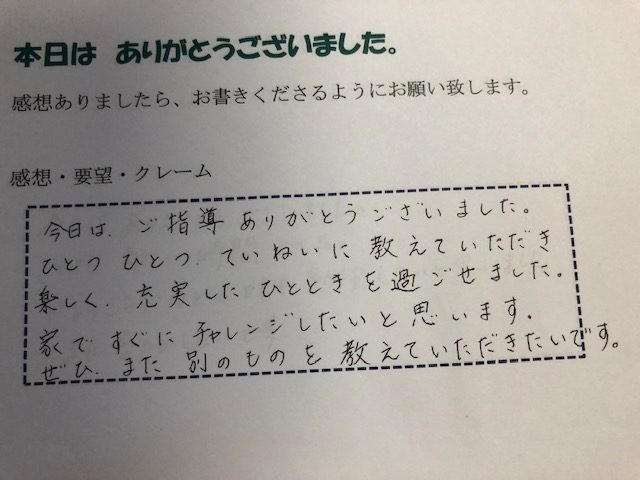 本日は ありがとうございました。
感想ありましたら、お書きくださるようにお願い致します。
感想・要望・クレーム
今日は、ご指導ありがとうございました。
ひとつひとつ、ていねいに教えていただき
楽しく、充実したひとときを過ごせました。
家ですぐにチャレンジしたいと思います。
ぜひ、また別のものを教えていただきたいです。